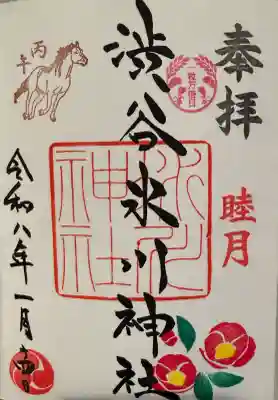 奉拝
睦月
渋谷氷川神社
丙午
令和八年一月
氷川
神社